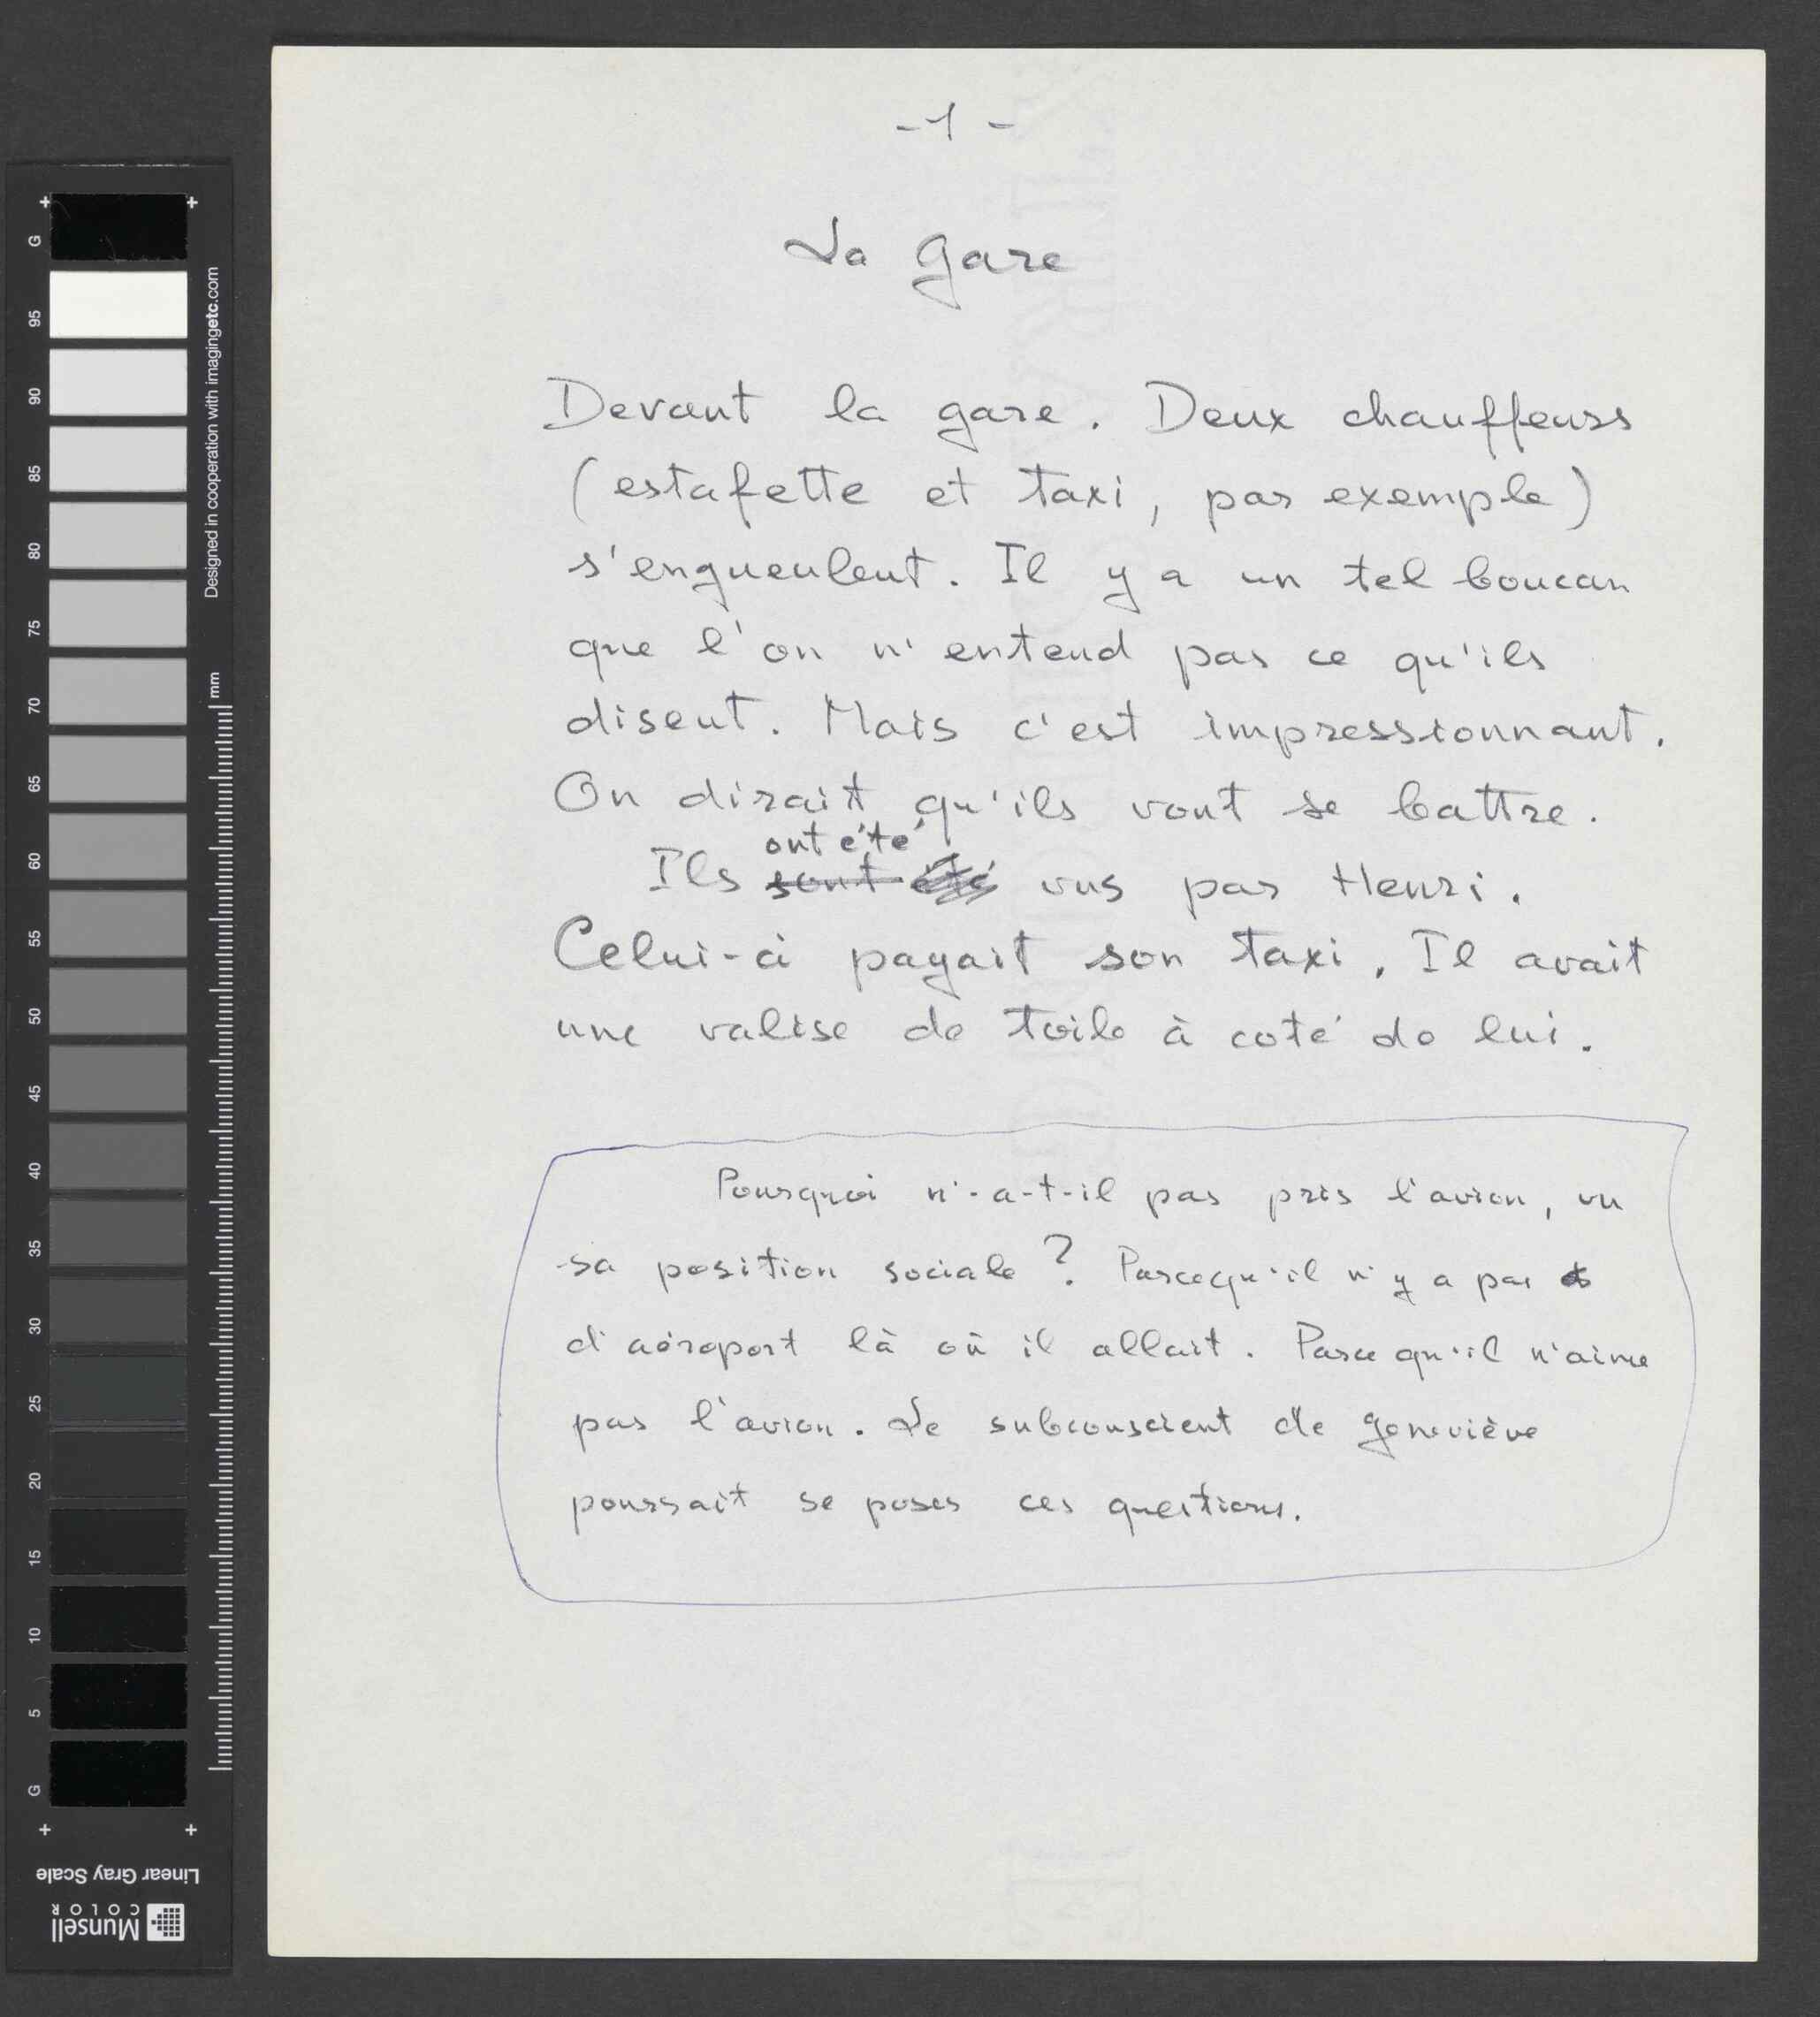 - 1 -
La gare
Devant la gare. Deux chauffeurs
(estafette et taxi, par exemple)
s'engueulent. Il y a un tel boucan
que l'on n'entend pas ce qu'ils
disent. Mais c'est impressionnant.
On dirait qu'ils vont se battre.
ont été
Ils sont été vus par Henri.
Celui-ci payait son taxi. Il avait
une valise de toile à coté de lui.
Pourquoi n'-a-t-il pas pris l'avion, vu
sa position sociale ? Parcequ'il n'y a pas
d'aéroport là où il allait. Parce qu'il n'aime
pas l'avion. Le subconscient de Geneviève
pourrait se poser ces questions.
G
95
90
85
80
75
70
65
60
55
50
45
40
35
30
25
20
15
10
5
G
Designed in cooperation with imagingetc.com
mm
Linear Gray Scale
Munsell
COLOR